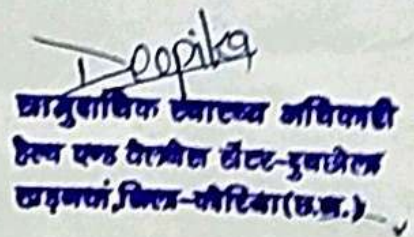 Deepika
सामुदायिक स्वास्थ्य अधिकारी
हेल्थ एण्ड वेलनेस सेंटर-दुबछोला
खड़गवां, जिला-कोरिया (छ.ग.)